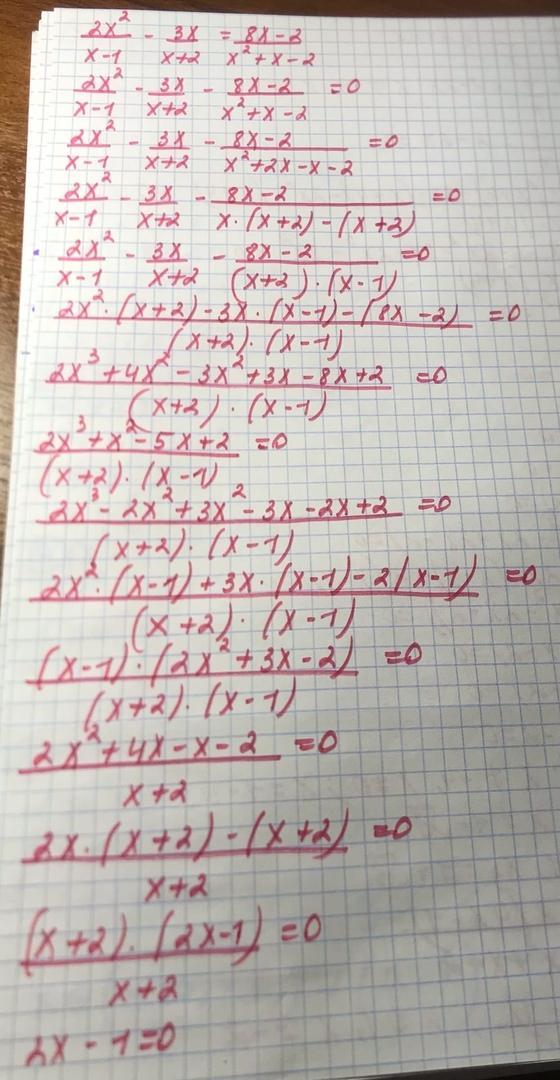 2x²/(x-1) - 3x/(x+2) = (8x-2)/(x²+x-2)
2x²/(x-1) - 3x/(x+2) - (8x-2)/(x²+x-2) =0
2x²/(x-1) - 3x/(x+2) - (8x-2)/(x²+2x-x-2) =0
2x²/(x-1) - 3x/(x+2) - (8x-2)/(x·(x+2)-(x+2)) =0
2x²/(x-1) - 3x/(x+2) - (8x-2)/((x+2)·(x-1)) =0
(2x²·(x+2)-3x·(x-1)-(8x-2))/((x+2)·(x-1)) =0
(2x³+4x²-3x²+3x-8x+2)/((x+2)·(x-1)) =0
(2x³+x²-5x+2)/((x+2)·(x-1)) =0
(2x³-2x²+3x²-3x-2x+2)/((x+2)·(x-1)) =0
(2x²·(x-1)+3x·(x-1)-2(x-1))/((x+2)·(x-1)) =0
((x-1)·(2x²+3x-2))/((x+2)·(x-1)) =0
(2x²+4x-x-2)/(x+2) =0
(2x·(x+2)-(x+2))/(x+2) =0
((x+2)·(2x-1))/(x+2) =0
2x-1=0